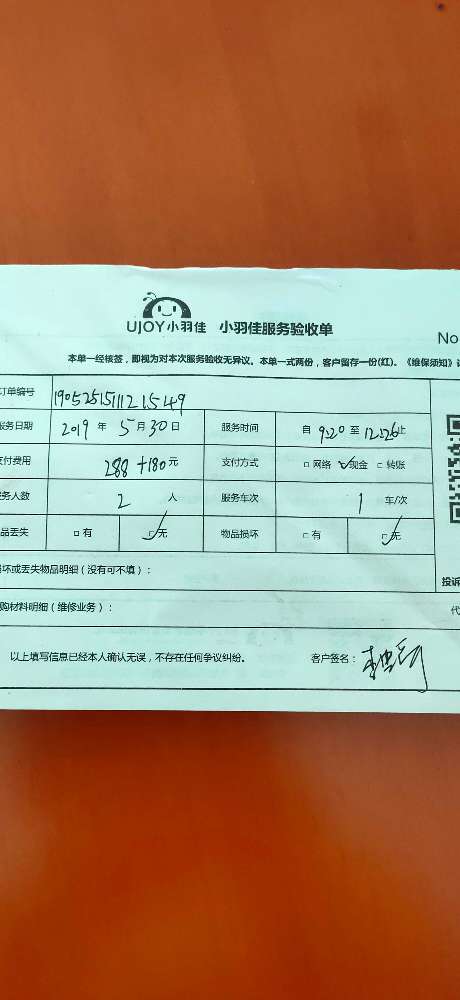 UJOY小羽佳 小羽佳服务验收单
No
本单一经核签，即视为对本次服务验收无异议。本单一式两份，客户留存一份(红)。《维保须知》
订单编号
服务日期 2019 年 5 月 30 日 服务时间 自 9:20 至 12:26止
支付费用 288+180元 支付方式 □ 网络 ✓现金 □ 转账
服务人数 2 人 服务车次 1 车/次
品丢失 □ 有 ☑无 物品损坏 □ 有 ☑无
损坏或丢失物品明细（没有可不填）：
投诉
购材料明细（维修业务）：
代
以上填写信息已经本人确认无误，不存在任何争议纠纷。 客户签名：